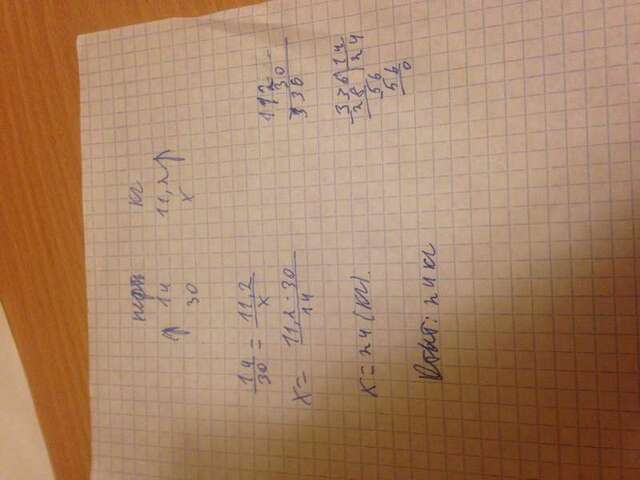 кг
14 11,2
30 x
14/30 = 11,2/x
x = 11,2 · 30/14
x = 24 (кг).
Ответ: 24 кг
112
30
336
336 14
28 24
56
56
0